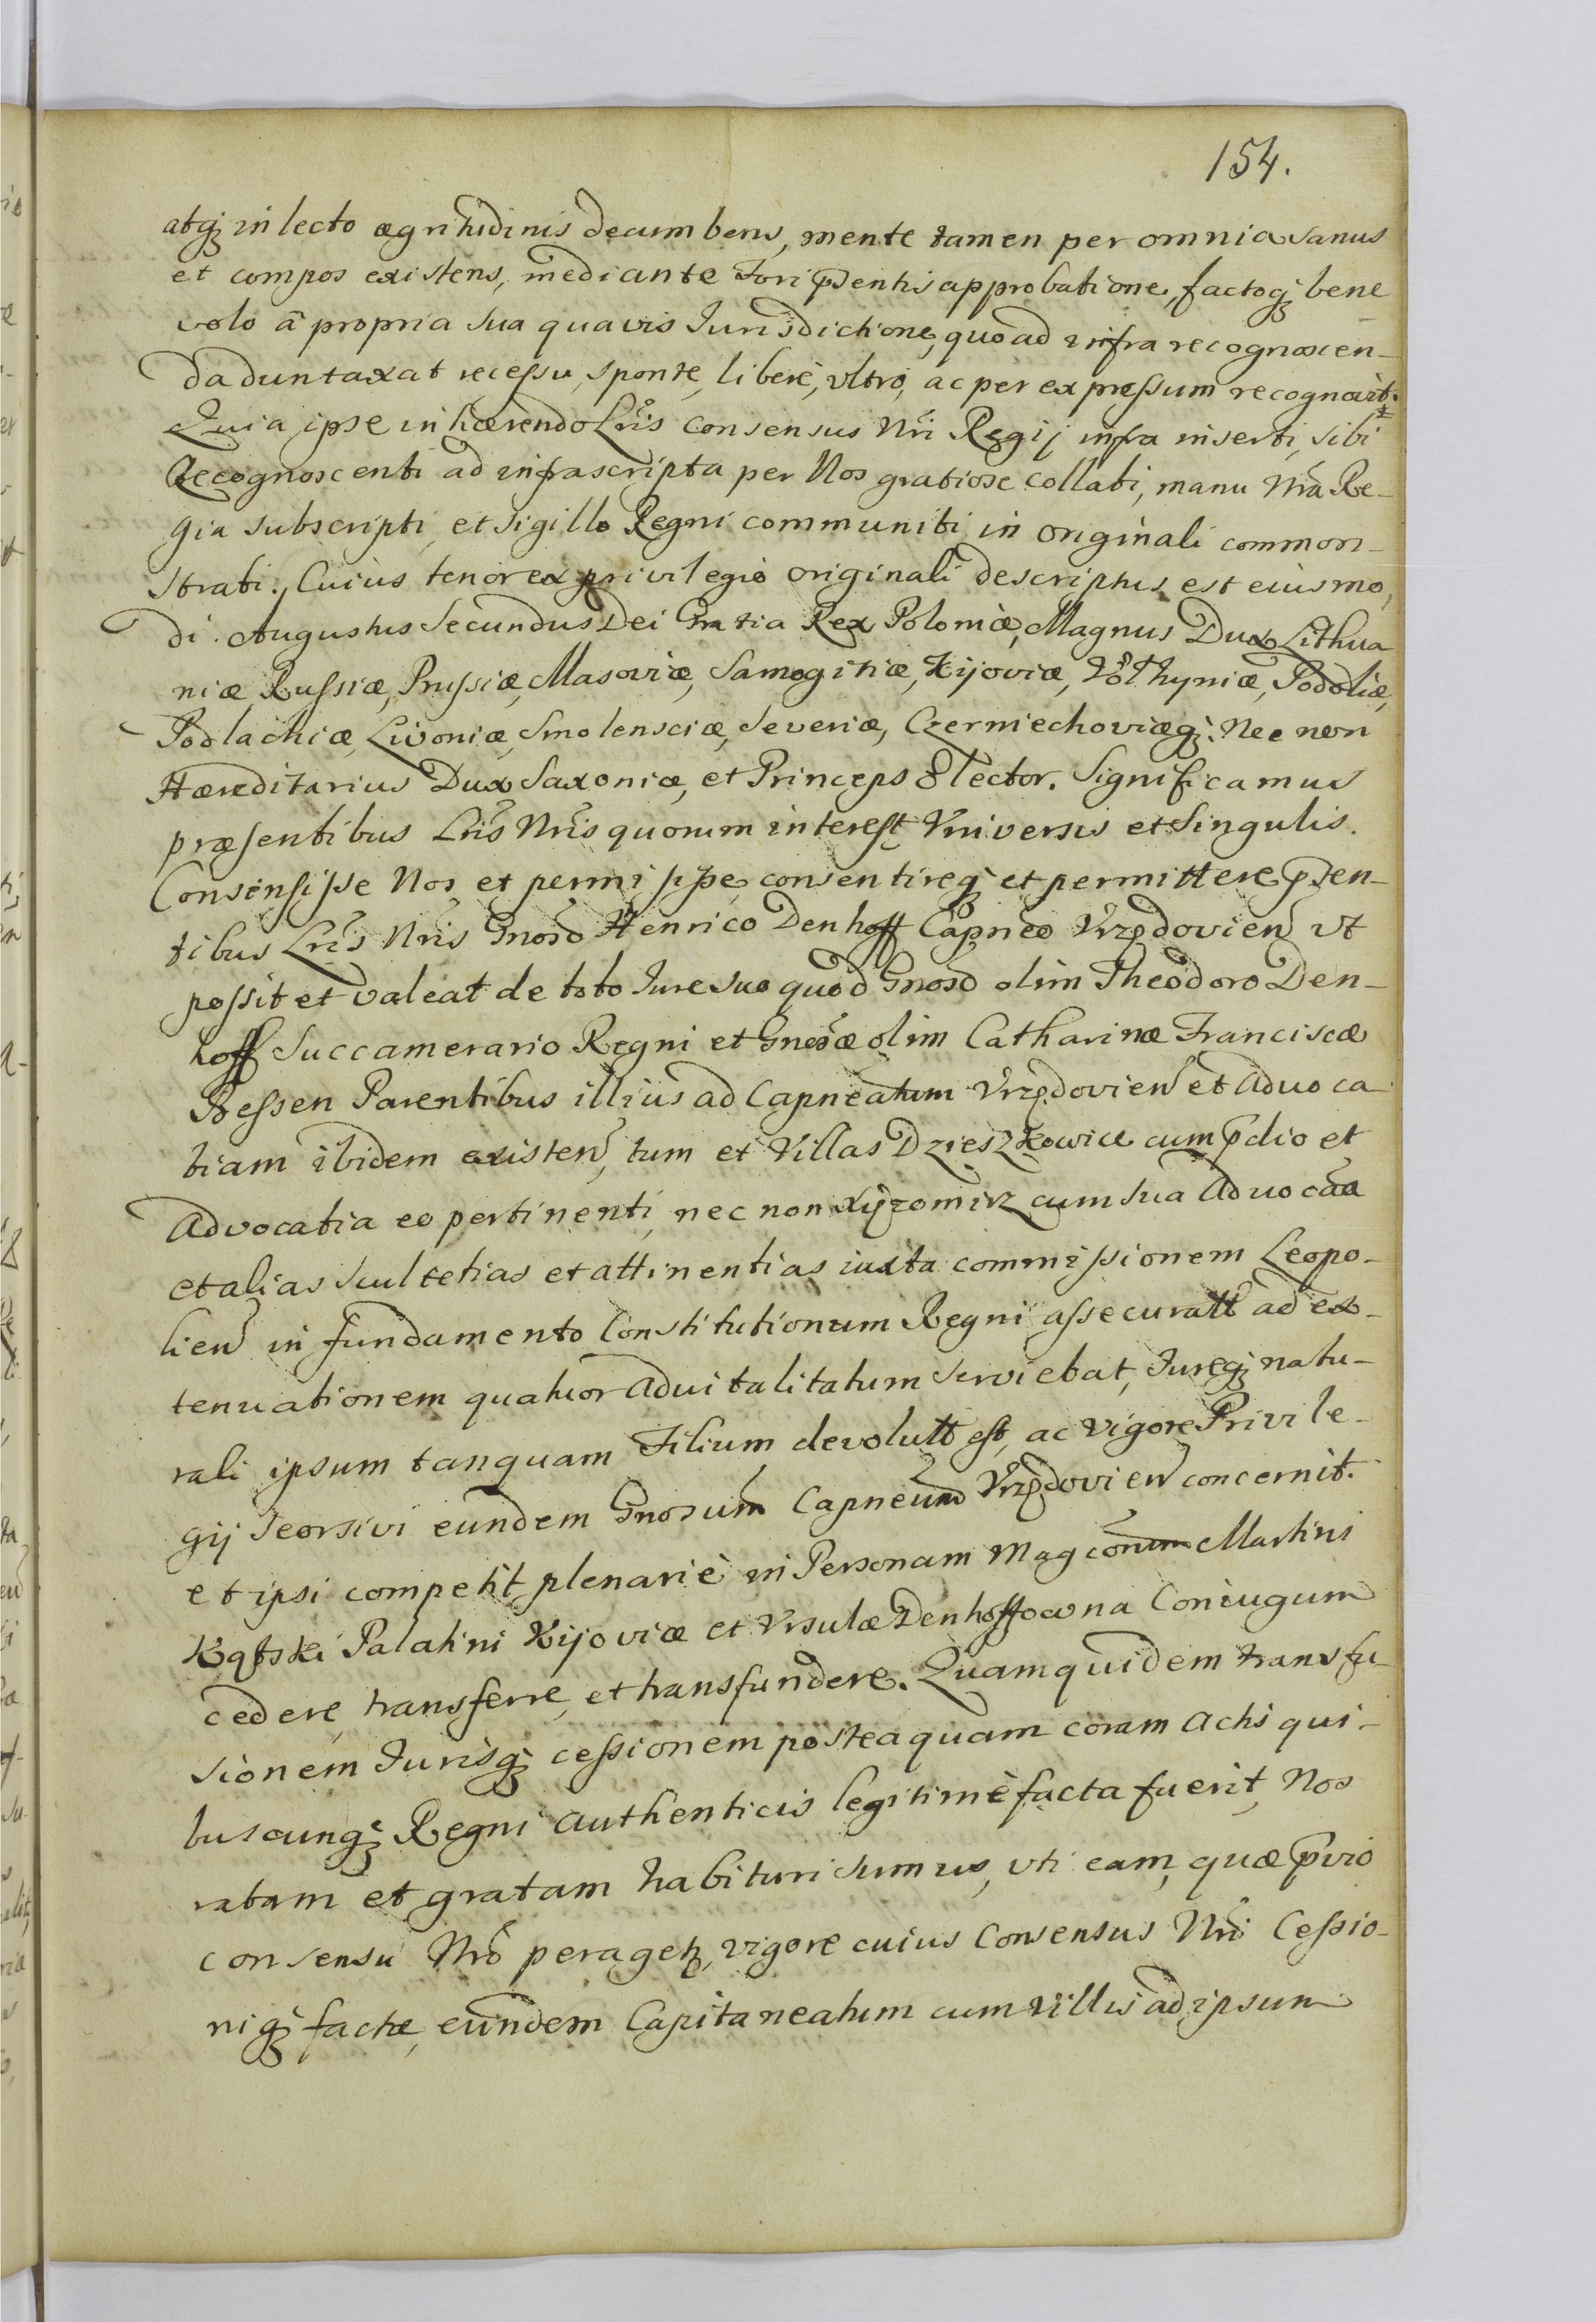 154.
atq; in lecto ægritudinis decumbens, mente tamen per omnia sanus
et compos existens, mediante Fori p̃sentis approbatione, factoq; bene
volo â propria sua quavis Jurisdictione, quo ad infra recognoscen-
da duntaxat recessu, sponte, liberè, vltrò, ac per expressum recognovit.
Quia ipse inhærendo Lr̃is Consensus Nr̃i Regij infra inserti, sibi
Recognoscenti ad infrascripta per Nos gratiose collati, manu Nr̃a Re-
gia subscripti, et sigillo Regni communiti in originali common-
strati. Cuius tenor ex privilegio originali descriptus est eiusmo
di. Augustus Secundus Dei Gratia Rex Poloniæ, Magnus Dux Lithua
niæ, Russiæ, Prussiæ, Masoviæ, Samogitiæ, Kijoviæ, Volhyniæ, Podoliæ,
Podlachiæ, Livoniæ, Smolensciæ, Severiæ, Czerniechoviæq;. Nec non
Hæreditarius Dux Saxoniæ, et Princeps Elector. Significamus
præsentibus Lr̃is Nr̃is quorum interest Vniversis et Singulis.
Consensisse Nos et permisisse, consentireq; et permittere p̃sen-
tibus Lr̃is Nr̃is Gnoso Henrico Denhoff Capneo Vrzędovien̄ vt
possit et valeat de toto Jure suo quod Gnoso olim Theodoro Den-
hoff Succamerario Regni et Gnosæ olim Catharinæ Franciscæ
Bessen Parentibus illius ad Capneatum Vrzędovien̄ et Advoca
tiam ibidem existen̄, tum et Villas Dzieszkowice cum p̃dio et
Advocatia eo pertinenti, nec non Xyżomirz cum sua Advocãa
et alias Scultetias et attinentias iuxta commissionem Leopo-
lien̄ in fundamento Constitutionum Regni assecuratt ad ex-
tenuationem quatuor advitalitatum serviebat, Jureq; natu-
rali ipsum tanquam Filium devolutt est, ac vigore Privile-
gij seorsivi eundem Gnosum Capneum Vrzędovien̄ concernit.
et ipsi competit plenariè in Personam Magcorum Martini
Kątski Palatini Kijoviæ et Vrsulæ Denhoffowna Coniugum
cedere, transferre, et transfundere. Quamquidem transfu-
sionem Jurisq; cessionem posteaquam coram Actis qui-
buscunq; Regni Authenticis legitimè facta fuerit, Nos
ratam et gratam habituri sumus, vti eam, quæ p̃vio
consensu Nr̃o peragetr, vigore cuius Consensus Nr̃i Cessio-
niq; factæ, eundem Capitaneatum cum Villis ad ipsum